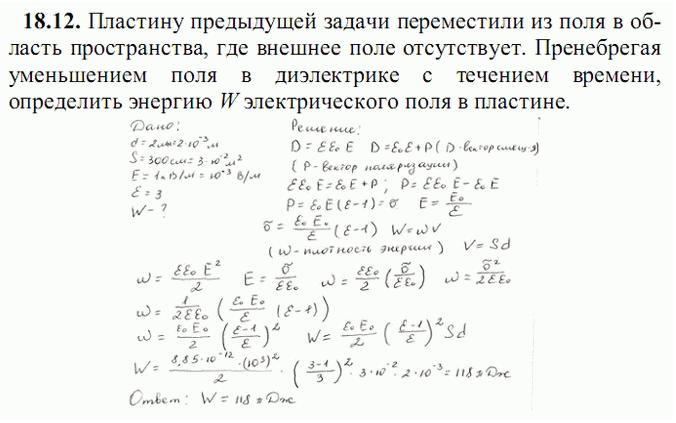 18.12. Пластину предыдущей задачи переместили из поля в об-
ласть пространства, где внешнее поле отсутствует. Пренебрегая
уменьшением поля в диэлектрике с течением времени,
определить энергию W электрического поля в пластине.
Дано:
d = 2мм = 2·10⁻³ м
S = 300см = 3·10⁻² м²
E = 1кВ/м = 10⁻³ В/м
ε = 3
W - ?
Решение:
D = εε₀E D = ε₀E + P (D - вектор смещ-я)
(P - вектор поляризации)
εε₀E = ε₀E + P; P = εε₀E - ε₀E
P = ε₀E(ε-1) = σ E = E₀/ε
σ = ε₀E₀/ε (ε-1) W = ωV
(ω - плотность энергии) V = Sd
ω = εε₀E²/2 E = σ/εε₀ ω = εε₀/2 (σ/εε₀) ω = σ²/2εε₀
ω = 1/2εε₀ (ε₀E₀/ε (ε-1))
ω = ε₀E₀/2 (ε-1/ε)² W = ε₀E₀/2 (ε-1/ε)² Sd
W = 8,85·10⁻¹²·(10³)²/2 · (3-1/3)² · 3·10⁻² · 2·10⁻³ = 118 пДж
Ответ: W = 118 пДж